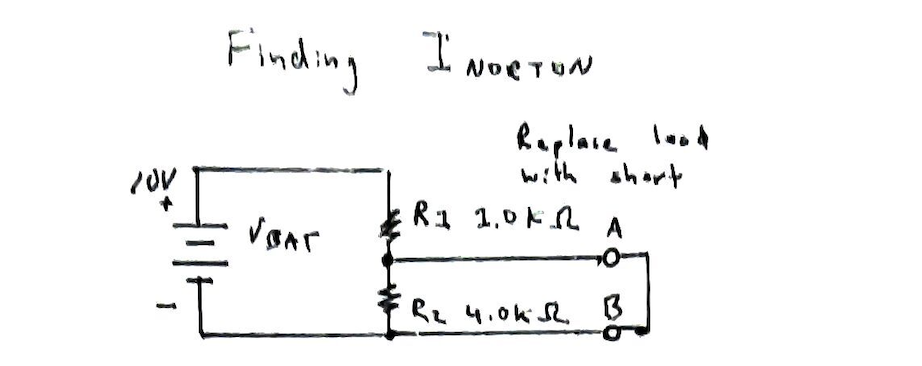 Finding I NORTON
Replace load
with short
10V
+
VBAT
R1 1.0KΩ
A
-
R2 4.0kΩ
B